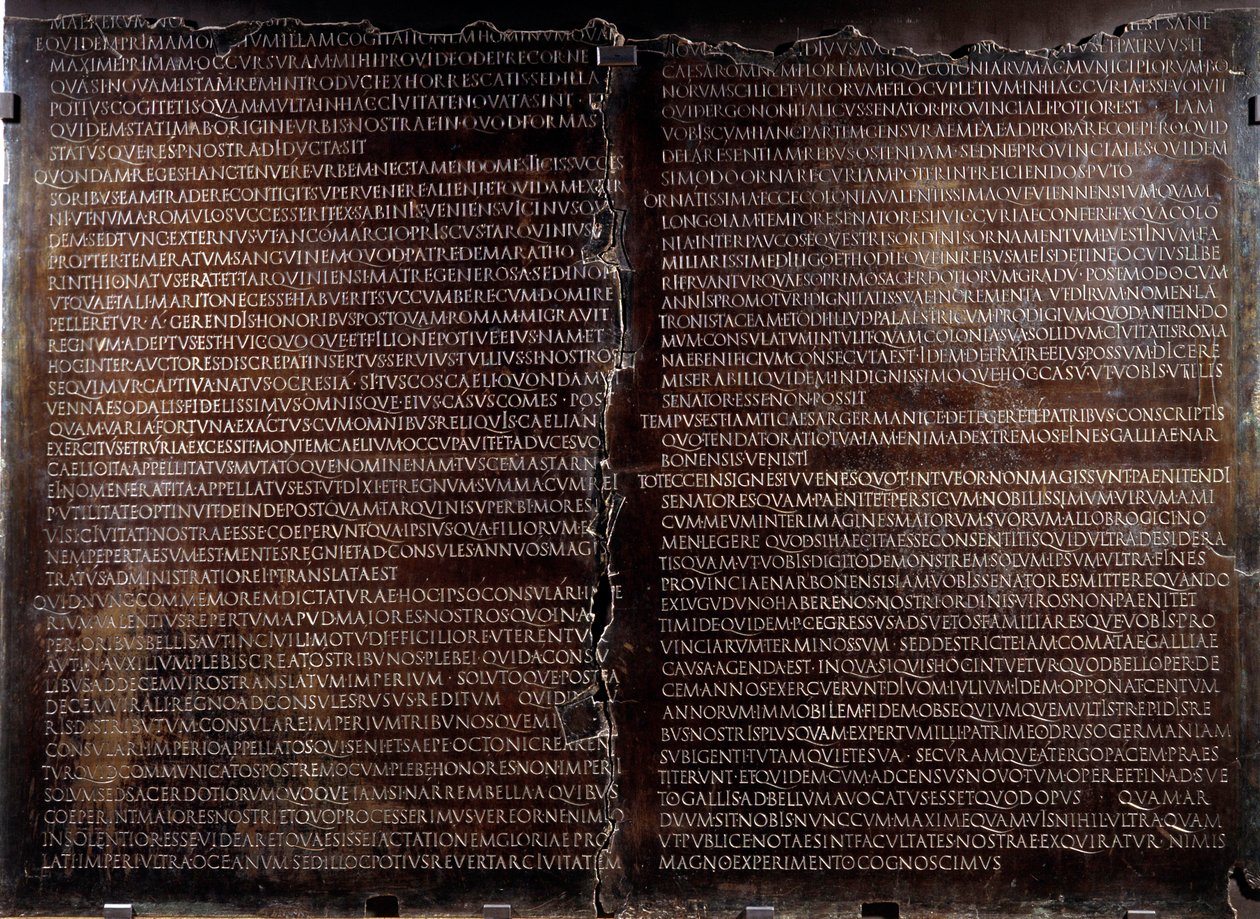 MAERERVM·NO
EQVIDEM·PRIMAM·OMNIVM·ILLAM·COGITATIONEM·HOMINVM·QVAM
MAXIME·PRIMAM·OCCVRSVRAM·MIHI·PROVIDEO·DEPRECOR·NE
QVASI·NOVAM·ISTAM·REM·INTRODVCI·EXHORRESCATIS·SED·ILLA
POTIVS·COGITETIS·QVAM·MVLTA·IN·HAC·CIVITATE·NOVATA·SINT
QVIDEM·STATIM·AB·ORIGINE·VRBIS·NOSTRAE·IN·QVOD·FORMAS
STATVSQVE·RES·P·NOSTRA·DIDVCTA·SIT
QVONDAM·REGES·HANC·TENVERE·VRBEM·NEC·TAMEN·DOMESTICIS·SVCCES
SORIBVS·EAM·TRADERE·CONTIGIT·SVPERVENERE·ALIENI·ET·QVIDAM·EXTER
NI·VT·NVMA·ROMVLO·SVCCESSERIT·EX·SABINIS·VENIENS·VICINVS·QV
DEM·SED·TVNC·EXTERNVS·VT·ANCO·MARCIO·PRISCVS·TARQVINIVS
PROPTER·TEMERATVM·SANGVINEM·QVOD·PATRE·DEMARATHO·
RINTHIO·NATVS·ERAT·ET·TARQVINIENSI·MATRE·GENEROSA·SED·INOP
VT·QVAE·TALI·MARITO·NECESSE·HABVERIT·SVCCVMBERE·CVM·DOMI·RE
PELLERETVR·A·GERENDIS·HONORIBVS·POSTQVAM·ROMAM·MIGRAVIT
REGNVM·ADEPTVS·EST·HVIC·QVOQVE·ET·FILIO·NEPOTIVE·EIVS·NAM·ET
HOC·INTER·AVCTORES·DISCREPAT·INSERTVS·SERVIVS·TVLLIVS·SI·NOSTROS
SEQVIMVR·CAPTIVA·NATVS·OCRESIA·SI·TVSCOS·CAELI·QVONDAM·V
VENNAE·SODALIS·FIDELISSIMVS·OMNISQVE·EIVS·CASVS·COMES·POS
QVAM·VARIA·FORTVNA·EXACTVS·CVM·OMNIBVS·RELIQVIS·CAELIAN
EXERCITVS·ETRVRIA·EXCESSIT·MONTEM·CAELIVM·OCCVPAVIT·ET·A·DVCE·SVO
CAELIO·ITA·APPELLITATVS·MVTATOQVE·NOMINE·NAM·TVSCE·MASTARN
EI·NOMEN·ERAT·ITA·APPELLATVS·EST·VT·DIXI·ET·REGNVM·SVMMA·CVM·REI
P·VTILITATE·OPTINVIT·DEINDE·POSTQVAM·TARQVINI·SVPERBI·MORES·
VISI·CIVITATI·NOSTRAE·ESSE·COEPERVNT·QVA·IPSIVS·QVA·FILIORVM·EI
NEMPE·PERTAESVM·EST·MENTES·REGNI·ET·AD·CONSVLES·ANNVOS·MAGI
TRATVS·ADMINISTRATIO·REI·P·TRANSLATA·EST
QVID·NVNC·COMMEMOREM·DICTATVRAE·HOC·IPSO·CONSVLARI·IMPE
RIVM·VALENTIVS·REPERTVM·APVD·MAIORES·NOSTROS·QVO·IN·A
PERIORIBVS·BELLIS·AVT·IN·CIVILI·MOTV·DIFFICILIORE·VTERENTVR
AVT·IN·AVXILIVM·PLEBIS·CREATOS·TRIBVNOS·PLEBEI·QVID·A·CONSV
LIBVS·AD·DECEMVIROS·TRANSLATVM·IMPERIVM·SOLVTOQVE·POSTE
DECEMVIRALI·REGNO·AD·CONSVLES·RVSVS·REDITVM·QVID·IN
RIS·DISTRIBVTVM·CONSVLARE·IMPERIVM·TRIBVNOSQVE·MI
CONSVLARI·IMPERIO·APPELLATOS·QVI·SENI·ET·SAEPE·OCTONI·CREAREN
TVR·QVID·COMMVNICATOS·POSTREMO·CVM·PLEBE·HONORES·NON·IMPERI
SOLVM·SED·SACERDOTIORVM·QVOQVE·IAM·SI·NARREM·BELLA·A·QVIBVS
COEPERINT·MAIORES·NOSTRI·ET·QVO·PROCESSERIMVS·VEREOR·NE·NIMIO
INSOLENTIOR·ESSE·VIDEAR·ET·QVAESISSE·IACTATIONEM·GLORIAE·PRO
LATI·IMPERI·VLTRA·OCEANVM·SED·ILLOC·POTIVS·REVERTAR·CIVITATEM
EST·SANE
NOVO·MORE·ET·DIVVS·AVGVSTVS·AVONCVLVS·MEVS·ET·PATRVVS·TI
CAESAR·OMNEM·FLOREM·VBIQVE·COLONIARVM·AC·MVNICIPIORVM·BO
NORVM·SCILICET·VIRORVM·ET·LOCVPLETIVM·IN·HAC·CVRIA·ESSE·VOLVIT
QVID·ERGO·NON·ITALICVS·SENATOR·PROVINCIALI·POTIOR·EST·IAM
VOBIS·CVM·HANC·PARTEM·CENSVRAE·MEAE·ADPROBARE·COEPERO·QVID
DE·EA·RE·SENTIAM·REBVS·OSTENDAM·SED·NE·PROVINCIALES·QVIDEM
SI·MODO·ORNARE·CVRIAM·POTERINT·REICIENDOS·PVTO
ORNATISSIMA·ECCE·COLONIA·VALENTISSIMAQVE·VIENNENSIVM·QVAM
LONGO·IAM·TEMPORE·SENATORES·HVIC·CVRIAE·CONFERT·EX·QVA·COLO
NIA·INTER·PAVCOS·EQVESTRIS·ORDINIS·ORNAMENTVM·L·VESTINVM·FA
MILIARISSIME·DILIGO·ET·HODIEQVE·IN·REBVS·MEIS·DETINEO·CVIVS·LIBE
RI·FRVANTVR·QVAESO·PRIMO·SACERDOTIORVM·GRADV·POST·MODO·CVM
ANNIS·PROMOTVRI·DIGNITATIS·SVAE·INCREMENTA·VT·DIRVM·NOMEN·LA
TRONIS·TACEAM·ET·ODI·ILLVD·PALAESTRICVM·PRODIGIVM·QVOD·ANTE·IN·DO
MVM·CONSVLATVM·INTVLIT·QVAM·COLONIA·SVA·SOLIDVM·CIVITATIS·ROMA
NAE·BENIFICIVM·CONSECVTA·EST·IDEM·DE·FRATRE·EIVS·POSSVM·DICERE
MISERABILI·QVIDEM·INDIGNISSIMOQVE·HOC·CASV·VT·VOBIS·VTILIS
SENATOR·ESSE·NON·POSSIT
TEMPVS·EST·IAM·TI·CAESAR·GERMANICE·DETEGERE·TE·PATRIBVS·CONSCRIPTIS
QVO·TENDAT·ORATIO·TVA·IAM·ENIM·AD·EXTREMOS·FINES·GALLIAE·NAR
BONENSIS·VENISTI
TOT·ECCE·INSIGNES·IVVENES·QVOT·INTVEOR·NON·MAGIS·SVNT·PAENITENDI
SENATORES·QVAM·PAENITET·PERSICVM·NOBILISSIMVM·VIRVM·AMI
CVM·MEVM·INTER·IMAGINES·MAIORVM·SVORVM·ALLOBROGICI·NO
MEN·LEGERE·QVOD·SI·HAEC·ITA·ESSE·CONSENTITIS·QVID·VLTRA·DESIDERA
TIS·QVAM·VT·VOBIS·DIGITO·DEMONSTREM·SOLVM·IPSVM·VLTRA·FINES
PROVINCIAE·NARBONENSIS·IAM·VOBIS·SENATORES·MITTERE·QVANDO
EX·LVGVDVNO·HABERE·NOS·NOSTRI·ORDINIS·VIROS·NON·PAENITET
TIMIDE·QVIDEM·P·C·EGRESSVS·ADSVETOS·FAMILIARESQVE·VOBIS·PRO
VINCIARVM·TERMINOS·SVM·SED·DESTRICTE·IAM·COMATAE·GALLIAE
CAVSA·AGENDA·EST·IN·QVA·SI·QVIS·HOC·INTVETVR·QVOD·BELLO·PER·DE
CEM·ANNOS·EXERCVERVNT·DIVOM·IVLIVM·IDEM·OPPONAT·CENTVM
ANNORVM·IMMOBILEM·FIDEM·OBSEQVIVMQVE·MVLTIS·TREPIDIS·RE
BVS·NOSTRIS·PLVSQVAM·EXPERTVM·ILLI·PATRI·MEO·DRVSO·GERMANIAM
SVBIGENTI·TVTAM·QVIETE·SVA·SECVRAMQVE·A·TERGO·PACEM·PRAES
TITERVNT·ET·QVIDEM·CVM·AD·CENSVS·NOVO·TVM·OPERE·ET·INADSVE
TO·GALLIS·AD·BELLVM·AVOCATVS·ESSET·QVOD·OPVS·QVAM·AR
DVVM·SIT·NOBIS·NVNC·CVM·MAXIME·QVAMVIS·NIHIL·VLTRA·QVAM
VT·PVBLICE·NOTAE·SINT·FACVLTATES·NOSTRAE·EXQVIRATVR·NIMIS
MAGNO·EXPERIMENTO·COGNOSCIMVS